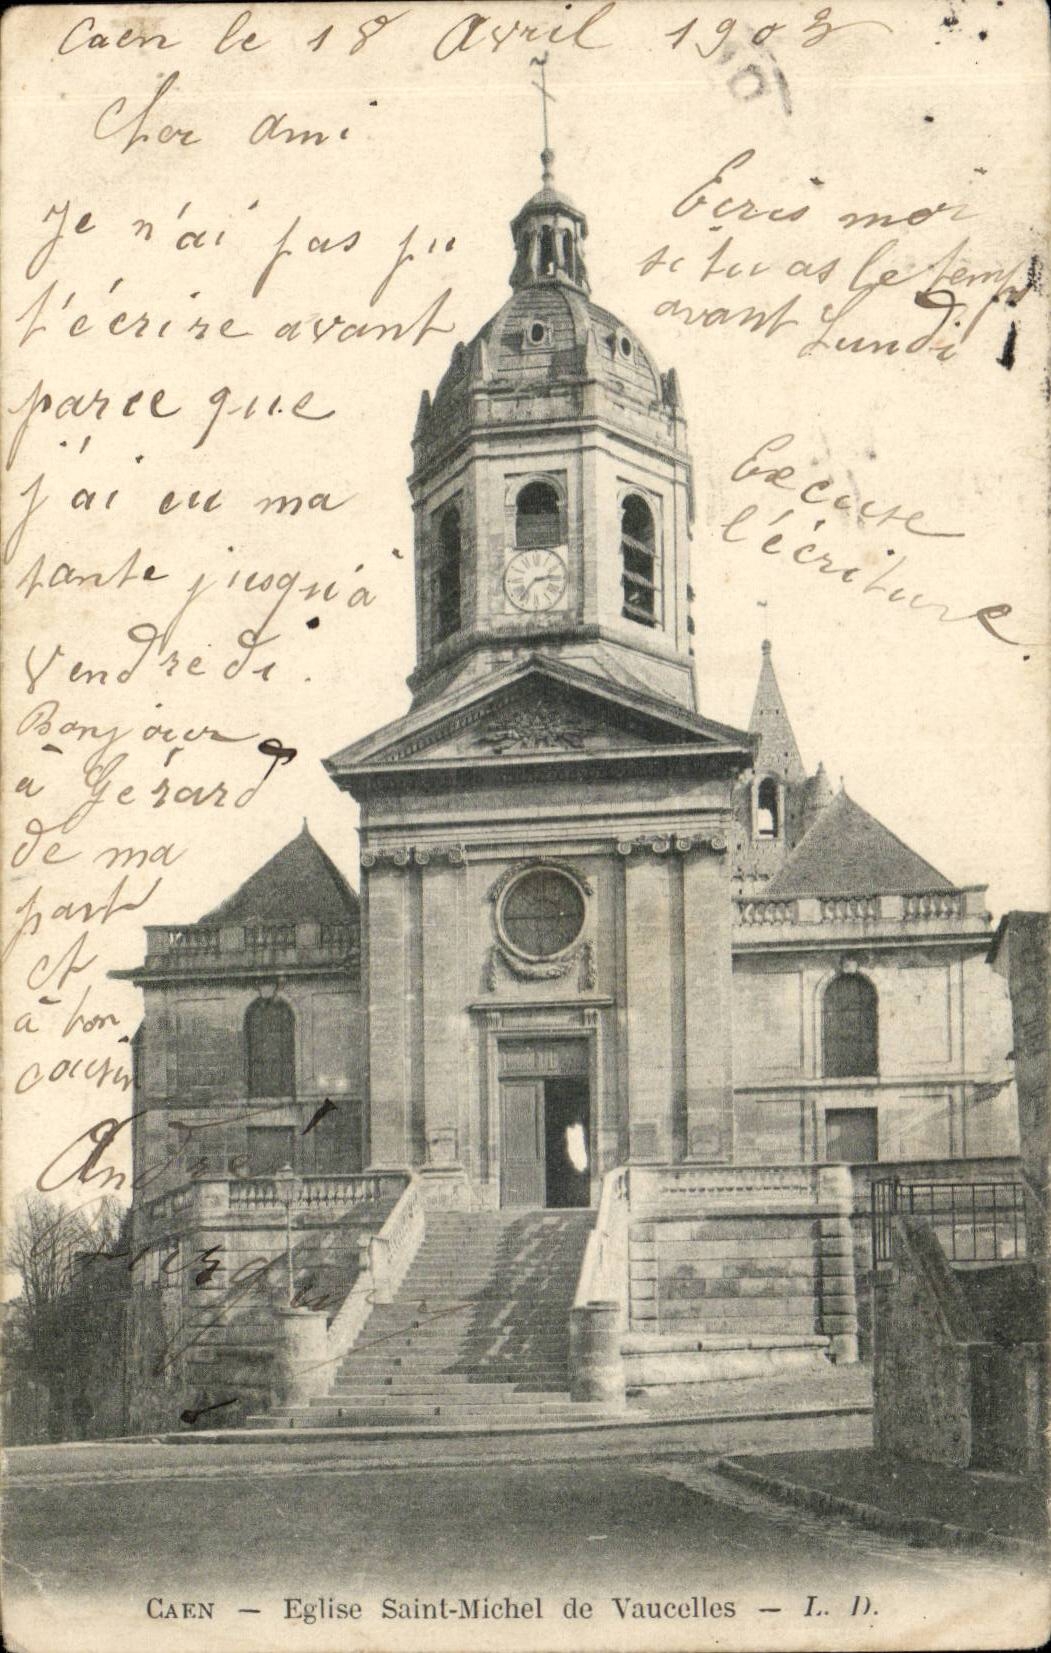 Caen le 18 Avril 1903
Cher ami
Je n'ai pas pu
t'écrire avant
parce que
j'ai eu ma
tante jusqu'à
Vendredi.
Bonjour
à Gérard
de ma
part
et
à ton
cousin
André
Ecris moi
si tu as le temps
avant Lundi
Excuse
l'écriture.
CAEN — Eglise Saint-Michel de Vaucelles — L. D.